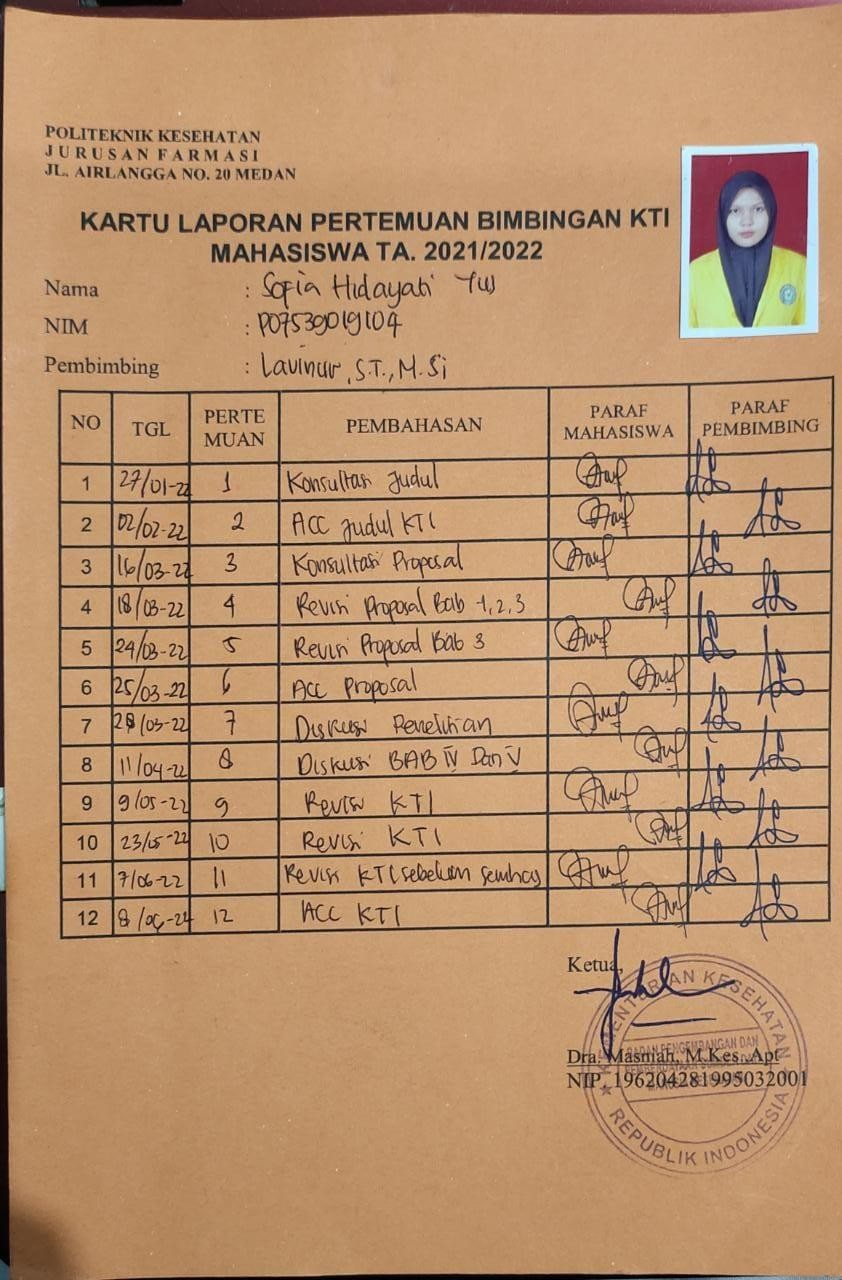 POLITEKNIK KESEHATAN
JURUSAN FARMASI
JL. AIRLANGGA NO. 20 MEDAN
KARTU LAPORAN PERTEMUAN BIMBINGAN KTI
MAHASISWA TA. 2021/2022
Nama : Sofia Hidayati
NIM : P07539019104
Pembimbing : Lavinur, S.T., M.Si
NO TGL PERTE MUAN PEMBAHASAN PARAF MAHASISWA PARAF PEMBIMBING
1 27/01-22 1 Konsultasi Judul
2 02/02-22 2 ACC Judul KTI
3 16/03-22 3 Konsultasi Proposal
4 18/03-22 4 Revisi Proposal Bab 1,2,3
5 24/03-22 5 Revisi Proposal Bab 3
6 25/03-22 6 Acc Proposal
7 28/03-22 7 Diskusi Penelitian
8 11/04-22 8 Diskusi BAB IV Dan V
9 9/05-22 9 Revisi KTI
10 23/05-22 10 Revisi KTI
11 7/06-22 11 Revisi KTI sebelum semhas
12 12 ACC KTI
Ketua,
Dra. Masniah, M.Kes, Apt
NIP. 196204281995032001
KEMENTERIAN KESEHATAN
BADAN PENGEMBANGAN DAN
REPUBLIK INDONESIA